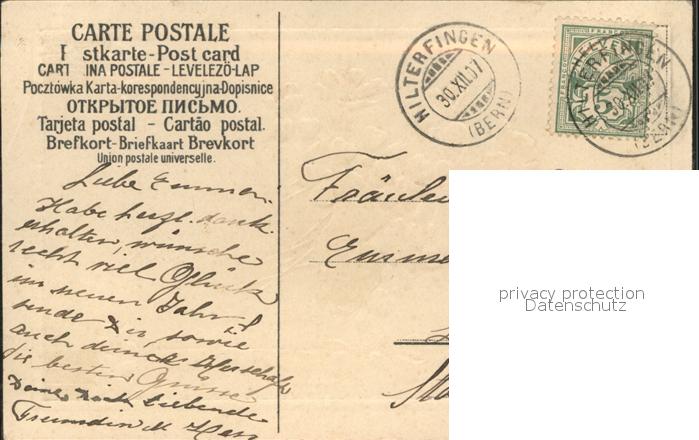 CARTE POSTALE
P stkarte-Post card
CART INA POSTALE - LEVELEZŐ-LAP
Pocztówka Karta-korespondencyjna-Dopisnice
ОТКРЫТОЕ ПИСЬМО.
Tarjeta postal - Cartão postal.
Brefkort-Briefkaart Brevkort
Union postale universelle.
HILTERFINGEN
30.XII.07
(BERN)
HILTERFINGEN
(BERN)
Liebe
Habe herzl. dank.
erhalten, wünsche
recht viel Glück
im neuen Jahr!
sende Dir, sowie
auch deiner
die besten Grüsse
Deine Dich liebende
Freundin M
Fräulein
privacy protection
Datenschutz